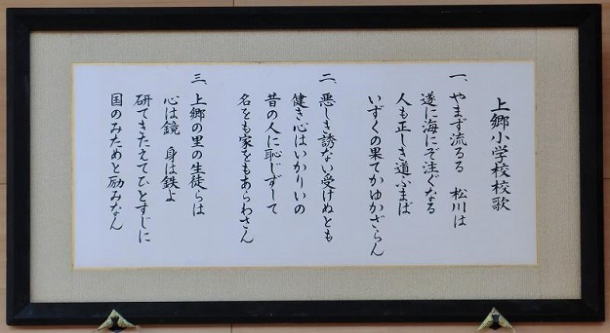 上郷小学校校歌
一、やまず流るる 松川は
遂に海にぞ注ぐなる
人も正しき道ふまば
いずくの果てかゆかざらん
二、悪しき誘ない受けぬとも
健き心はいかりいの
昔の人に恥じずして
名をも家をもあらわさん
三、上郷の里の生徒らは
心は鏡 身は鉄よ
研てきたえてひとすじに
国のみためと励みなん